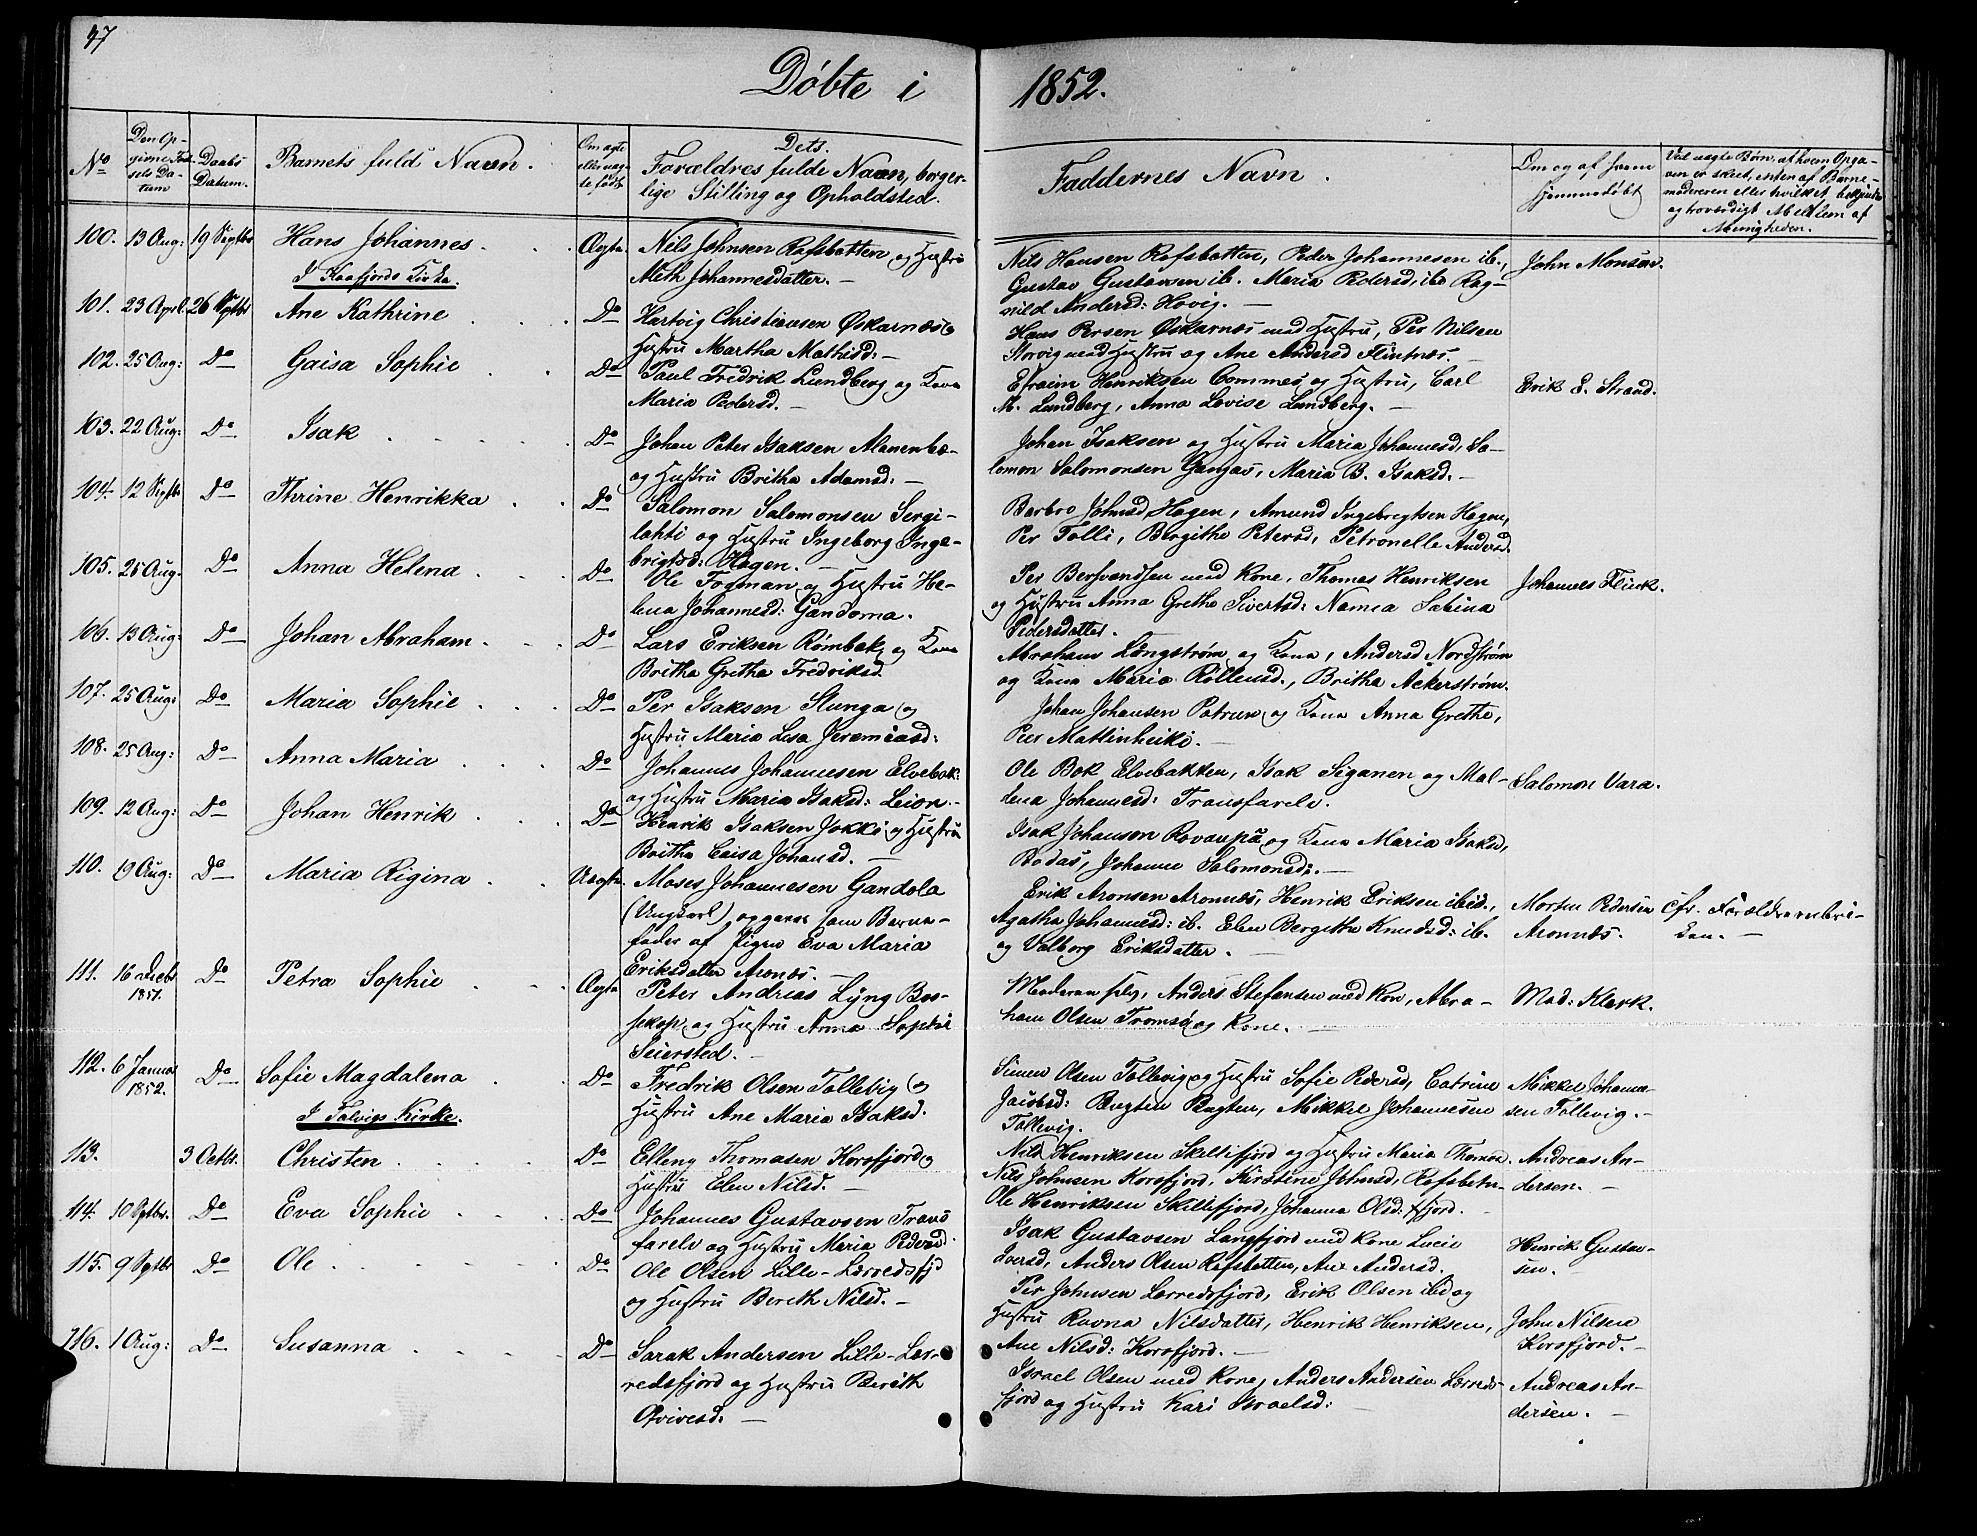 97
Døbte i 1852.
No
Den Op-
givne Fød-
sels Da-
tum
Daabs
Datum.
Barnets fuld Navn.
Om ægte
eller uæg-
te født
Dets
Forældres fulde Navn, borger-
lige Stilling og Opholdsted.
Faddernes Navn.
Om og af hvem
hjemmedøbt
Ved uægte Børn, af hvem Opga-
ven er skeet, enten af Barne-
moderen eller hvilket bekjendt
og troværdigt Medlem af
Menigheden.
100. 13 Aug: 19 Septbr Hans Johannes. Ægte Nils Johnsen Rafsbotten og Hustru
Meth Johannesdatter. —
Nils Hansen Rafsbotten, Peder Johannesen ib.,
Gustav Gustavsen ib. Maria Pedersd, ibd Rag-
nild Andersd: Hovig. —
John Monsen.
I Kaafjords Kirke.
101. 23 April 26 Septbr Ane Kathrine Do Hartvig Christiansen Øskarnæs og
Hustru Martha Mathisd: —
Hans Persen Øskarnæs med Hustru, Per Nilsen
Storvig med Hustru og Ane Andersd Flintnæs. —
102. 25 Aug: Do Gaisa Sophie Do Paul Fredrik Lundberg og Kone
Maria Pedersd. —
Efraim Henriksen Commes og Hustru, Carl
M. Lundberg, Anna Lovise Lundberg. —
Erik E. Strand.
103. 22 Aug: Do Isak Do Johan Peter Isaksen Alanenbæ-
og Hustru Britha Adamsd: —
Johan Isaksen og Hustru Maria Johannesd, Sa-
lomon Salomonsen Gangas, Maria B. Isaksd. —
104. 12 Septbr Do Thrine Henrikka Do Salomon Salomonsen Sergi-
lahti og Hustru Ingeborg Inge-
brigtsd: Hagen. —
Barbro Johnsd Hagen, Amund Ingebregtsen Hagen,
Per Tolli, Bergithe Petersd, Petronelle Andersd.
105. 25 Aug. Do Anna Helena Do Ole Fogman og Hustru He-
lena Johannesd: Gandorna.
Per Bersvendsen med Kone, Thomas Henriksen
og Hustru Anna Grethe Sivertsd: Namna Sabina
Pedersdatter. —
Johannes Flink.
106. 13 Aug: Do Johan Abraham. Do Lars Eriksen Rømbak og Kone
Britha Gretha Fredriksd.
Abraham Lângstrøm og Kone, Andersd Nordstrøm
og Kone Maria Röllensd., Britha Ackerstrøm.
107. 25 Aug: Do Maria Sophie Do Per Isaksen Stunga og
Hustru Maria Lisa Jeremiasd:
Johan Johansen Patrun og Kone Anna Grethe,
Per Mattinheiki. —
108. 25 Aug: Do Anna Maria Do Johannes Johannesen Elvebak:
og Hustru Maria Isaksd: Leion. —
Ole Bok Elvebakken, Isak Siganen og Mal-
lena Johannesd: Transfarelv.
Salomon Vara.
109. 12 Aug: Do Johan Henrik Do Henrik Isaksen Jokki og Hustru
Britha Caisa Johansd. —
Isak Johansen Rovanpä og Kone Maria Isaksd,
Bodas, Johanne Salomonsd: —
110. 19 Aug: Do Maria Rigina Uægte. Moses Johannesen Gandola
(Ungkarl), opgaves som Barne-
fader af Pigen Eva Maria
Eriksdatter Aronæs. —
Erik Aronsen Aronnæs, Henrik Eriksen ibid.,
Agatha Johannesd: ib. Elen Bergithe Knudsd: ib.
og Valborg Eriksdatter.
Morten Pedersen
Aronnæs.
Cfr. Forældrerubri-
ken. —
111. 16 Decbr
1851. Do Petra Sophie Ægte Peter Andreas Lyng Bos-
sekop, og Hustru Anna Sophie
Seiersted. —
Moderen selv, Anders Stefansen med Kone, Abra-
ham Olsen Tromsø og Kone. —
Mad: Klark.
112. 6 Januar
1852. Do Sofie Magdalena Do Fredrik Olsen Tollevig og
Hustru Ane Maria Isaksd.
Simen Olsen Tollevig og Hustru Sofie Pedersd, Catrine
Jacobsd: Bugten Bugten, Mikkel Johannesen
Tollevig.
Mikkel Johanne-
sen Tollevig. —
I Talvigs Kirke.
113. 3 Octbr. Christen Do Elleng Thomasen Korsfjord og
Hustru Elen Nilsd. —
Nils Henriksen Skillifjord og Hustru Maria Thomæ.
Nils Johnsen Korsfjord, Kirstine Johnsd, Rafsbotn-
Ole Henriksen Skillifjord, Johanna Olsd: fjord.
Andreas An-
dersen. —
114. 10 Septbr. Do Eva Sophie Do Johannes Gustavsen Trans
farelv og Hustru Maria Pedersd.
Isak Gustavsen Langfjord med Kone Lucie
Iversd, Anders Olsen Rafsbotten, Ane Andersd.
Henrik Gustav-
sen.
115. 9 Septbr Do Ole Do Ole Olsen Lille-Lerredsfjd
og Hustru Bereth Nilsd. —
Per Johnsen Lerredsfjord, Erik Olsen ibd og
Hustru Ravna Nilsdatter, Henrik Henriksen,
Ane Nilsd: Korsfjord. —
John Nilsen
Korsfjord. —
116. 1 Aug: Do Susanna Do Sarak Andersen Lille-Ler-
redsfjord og Hustru Bereth
Qvivesd: —
Israel Olsen med Kone, Anders Andersen Lerreds-
fjord og Hustru Kari Israelsd: —
Andreas An-
dersen. —